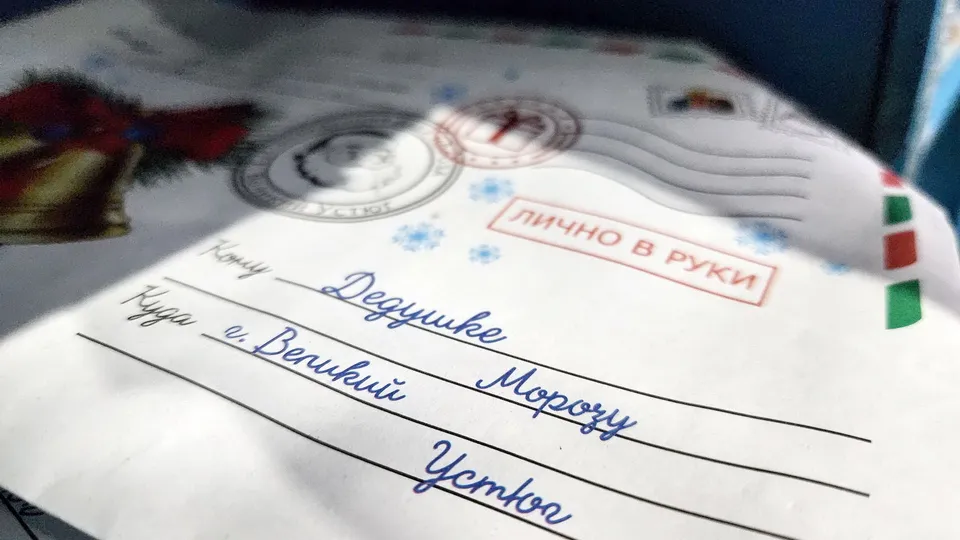 УСТЮГ
ЛИЧНО В РУКИ
Кому Дедушке
Морозу
Куда г. Великий
Устюг